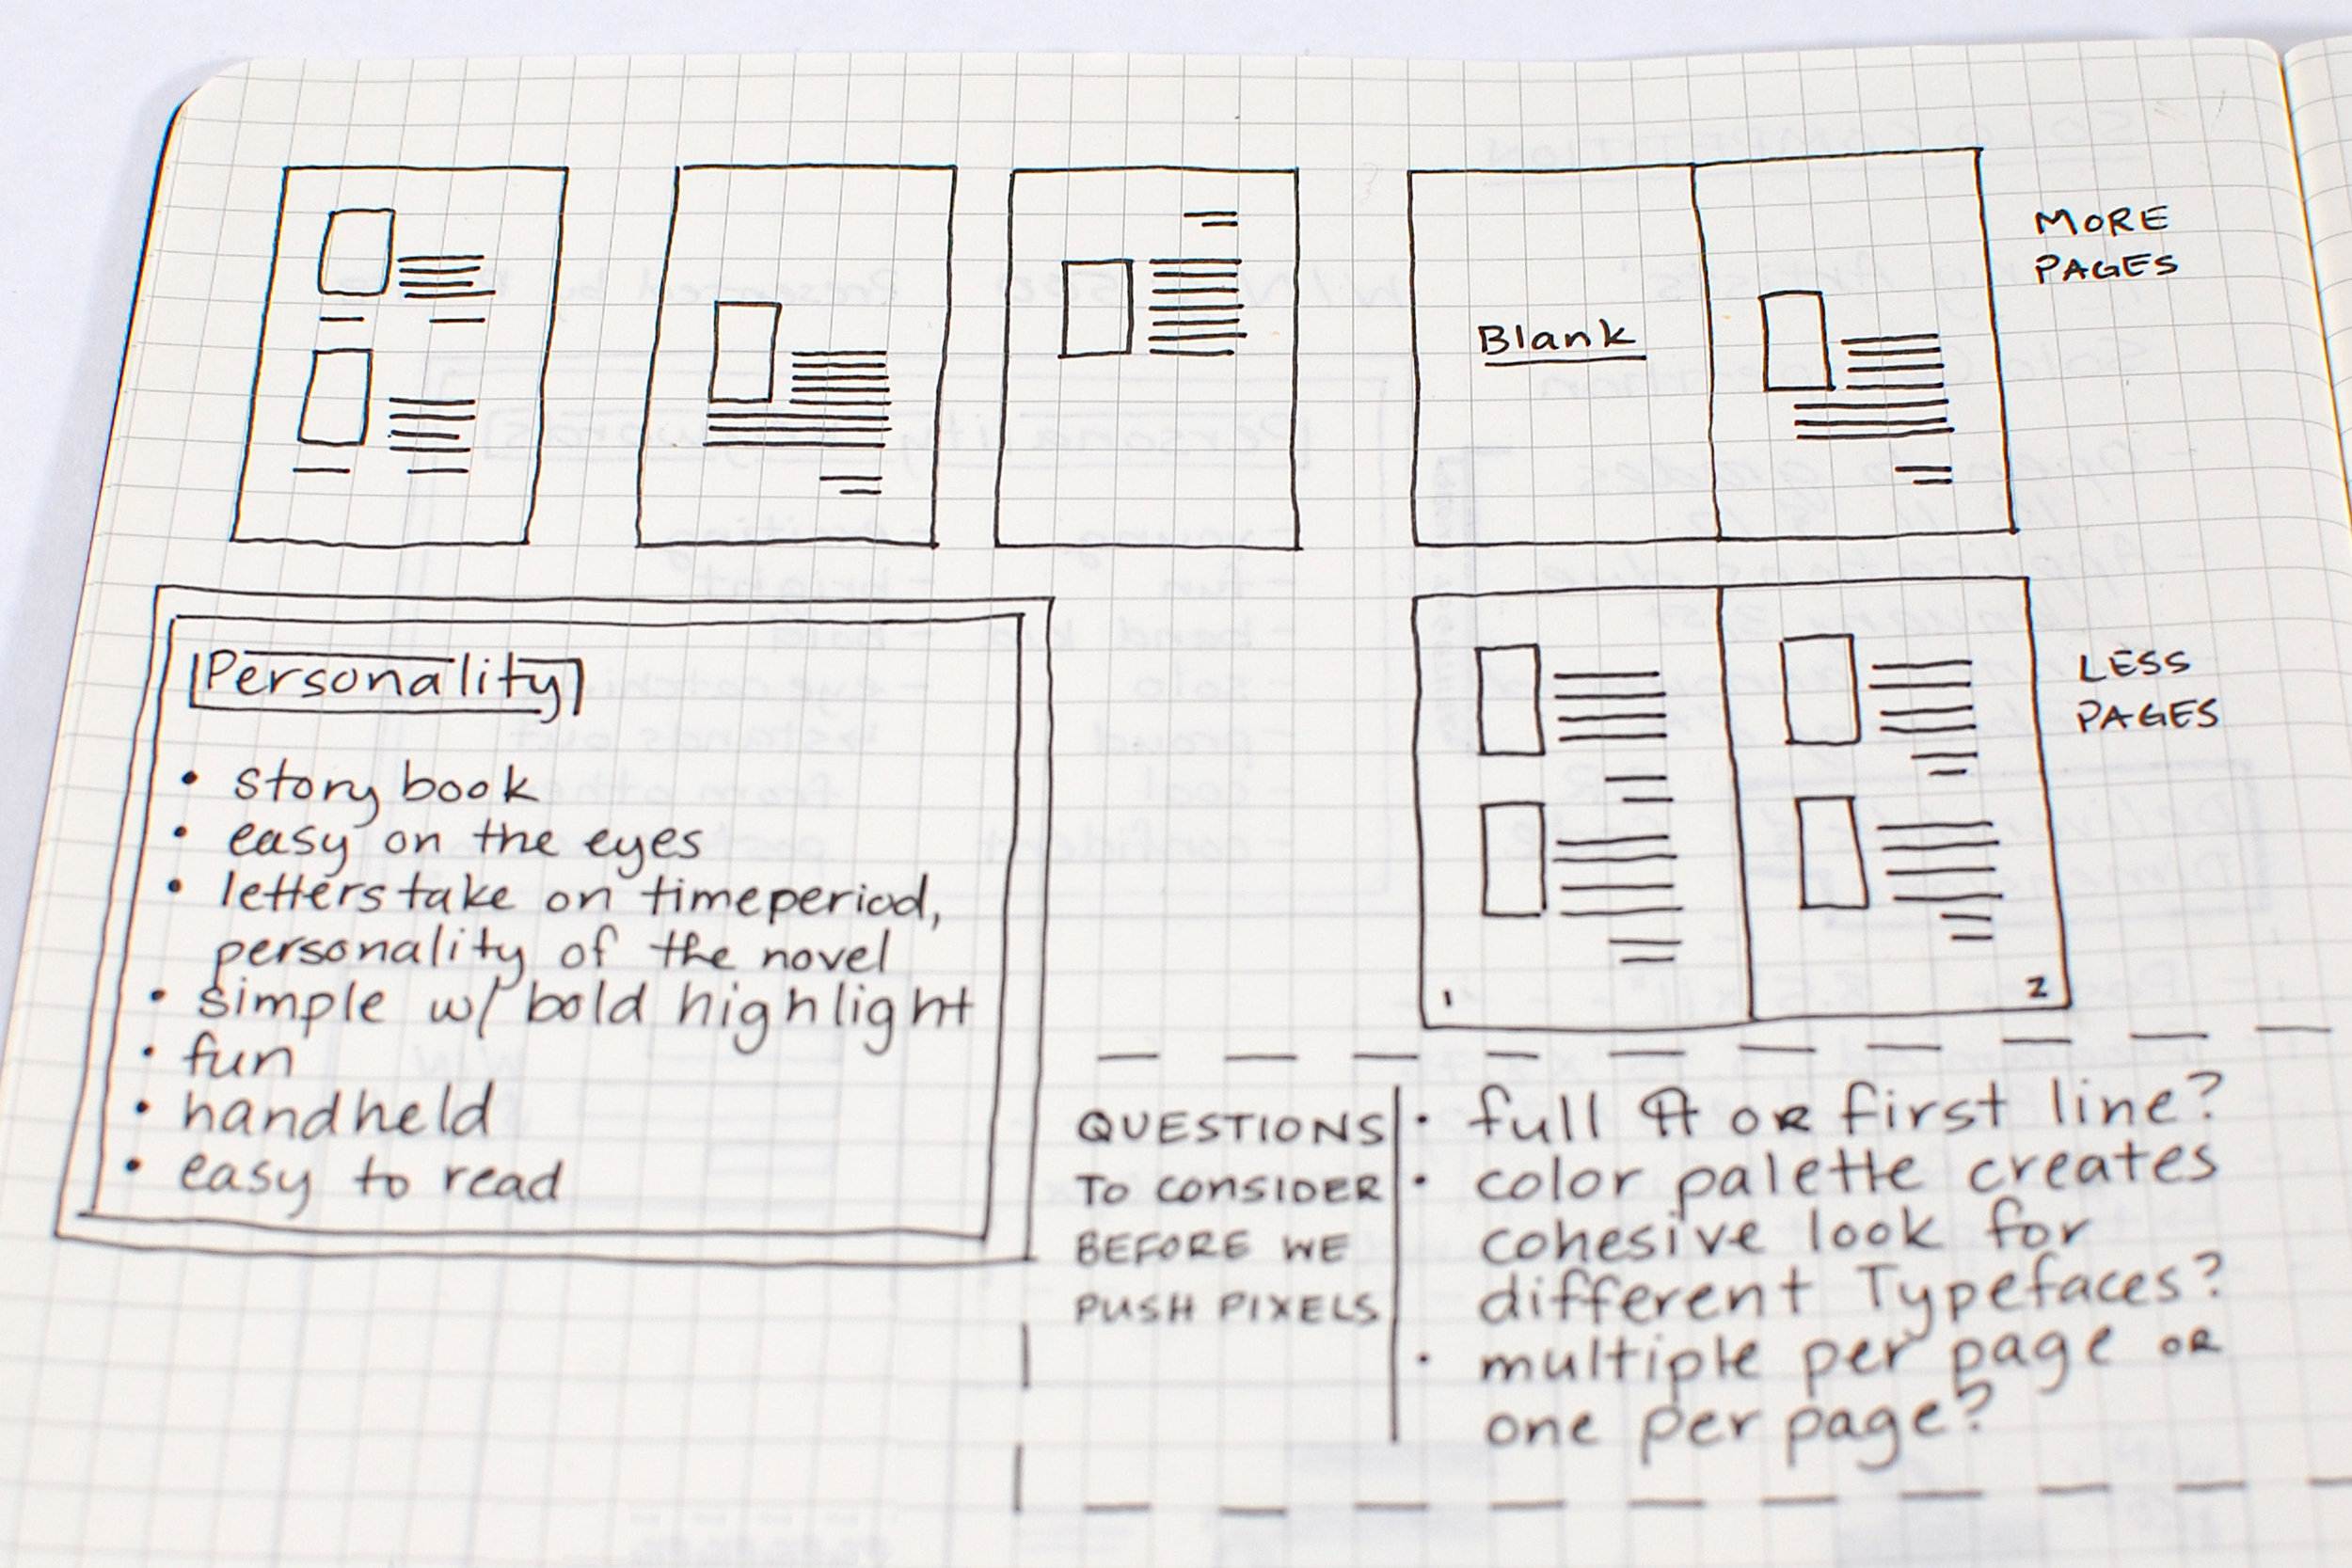 MORE
PAGES
Blank
LESS
PAGES
1
2
Personality
• story book
• easy on the eyes
• letters take on timeperiod,
personality of the novel
• simple w/ bold highlight
• fun
• handheld
• easy to read
QUESTIONS
TO CONSIDER
BEFORE WE
PUSH PIXELS
• full ¶ OR first line?
• color palette creates
cohesive look for
different Typefaces?
• multiple per page OR
one per page?